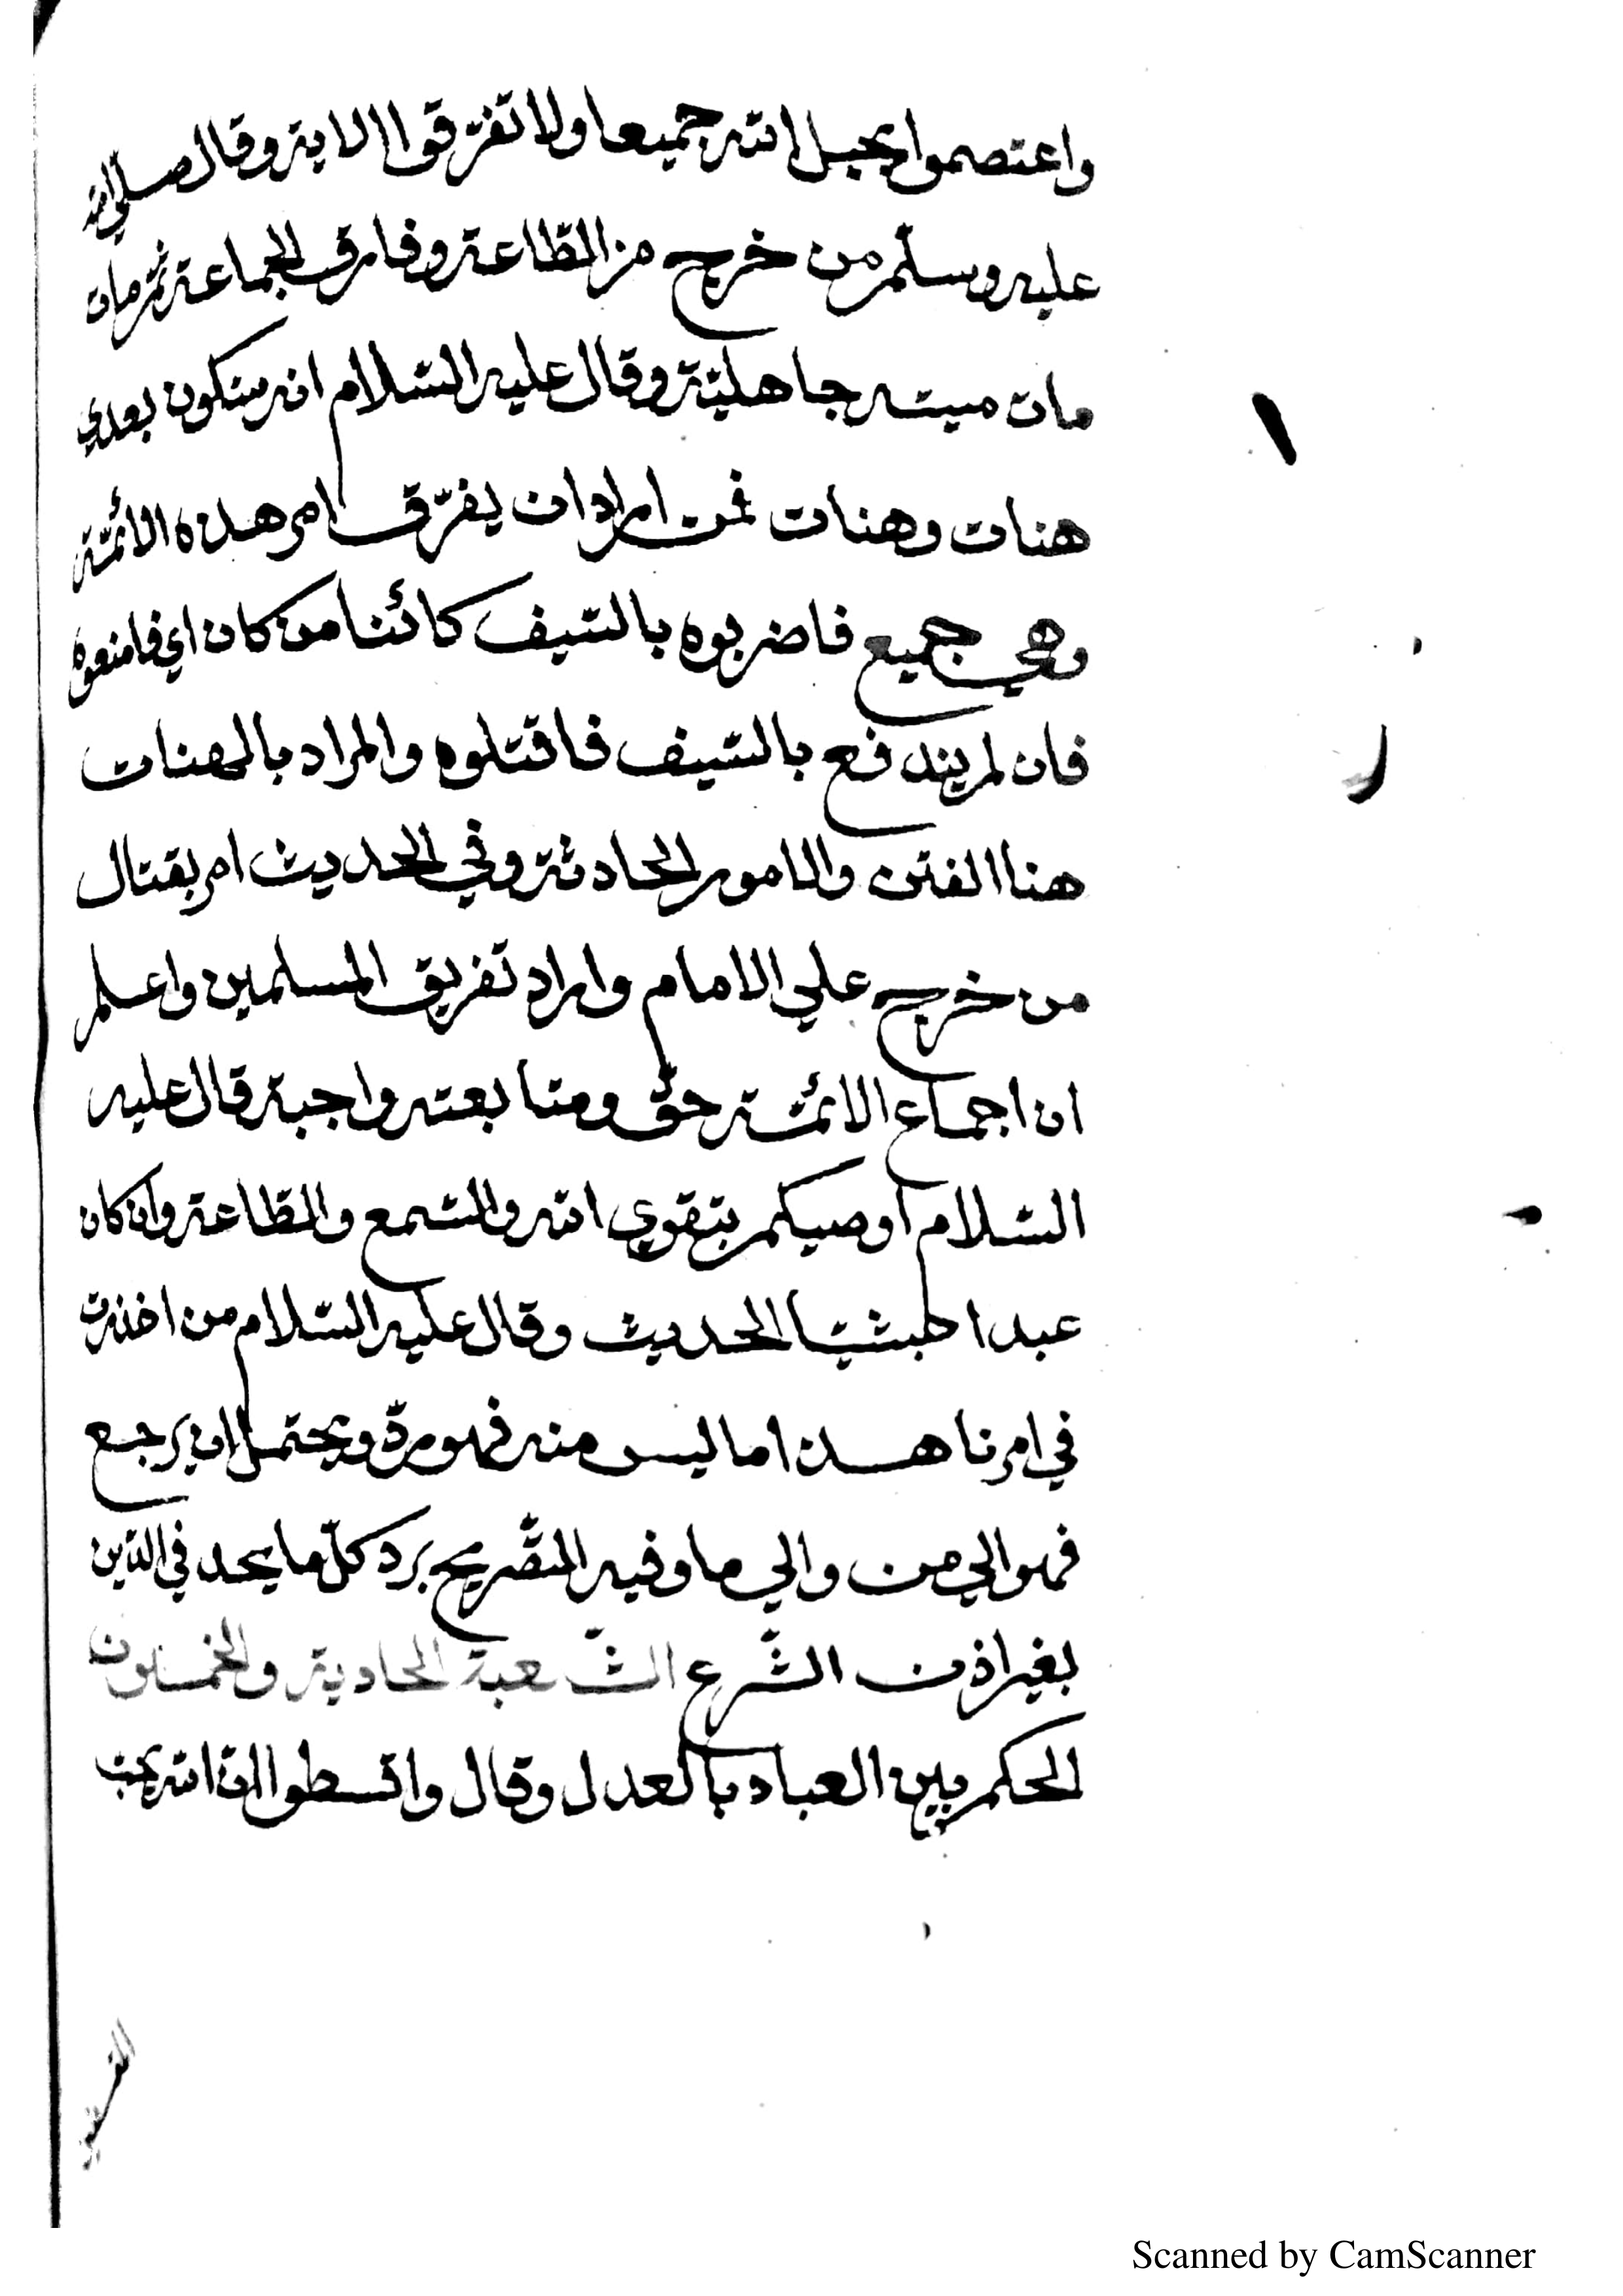 واعتصموا بحبل الله جميعا ولا تفرقوا الاية وقال صلى الله
عليه وسلم من خرج من الطاعة وفارق الجماعة ثم مات
مات ميتة جاهلية وقال عليه السلام انه ستكون بعدي
هنات وهنات فمن اراد ان يفرق امر هذه الائمة
وهي جميع فاضربوه بالسيف كائنا من كان اي فامنعوه
فان لم يندفع بالسيف فاقتلوه والمراد بالهنات
هنا الفتن والامور الحادثة وفي الحديث امر بقتال
من خرج علي الامام واراد تفريق المسلمين واعلم
ان اجماع الائمة حق ومتابعته واجبة قال عليه
السلام اوصيكم بتقوي الله والسمع والطاعة وان كان
عبدا حبشيا الحديث وقال عليه السلام من احدث
في امرنا هذا ما ليس منه فهو رد ويحتمل ان يرجع
فهو الي من والي ما وفيه التصريح برد كل ما يحد في الدين
بغير اذن الشرع الشعبة الحادية والخمسون
الحكم بين العباد بالعدل وقال واقسطوا ان الله يحب